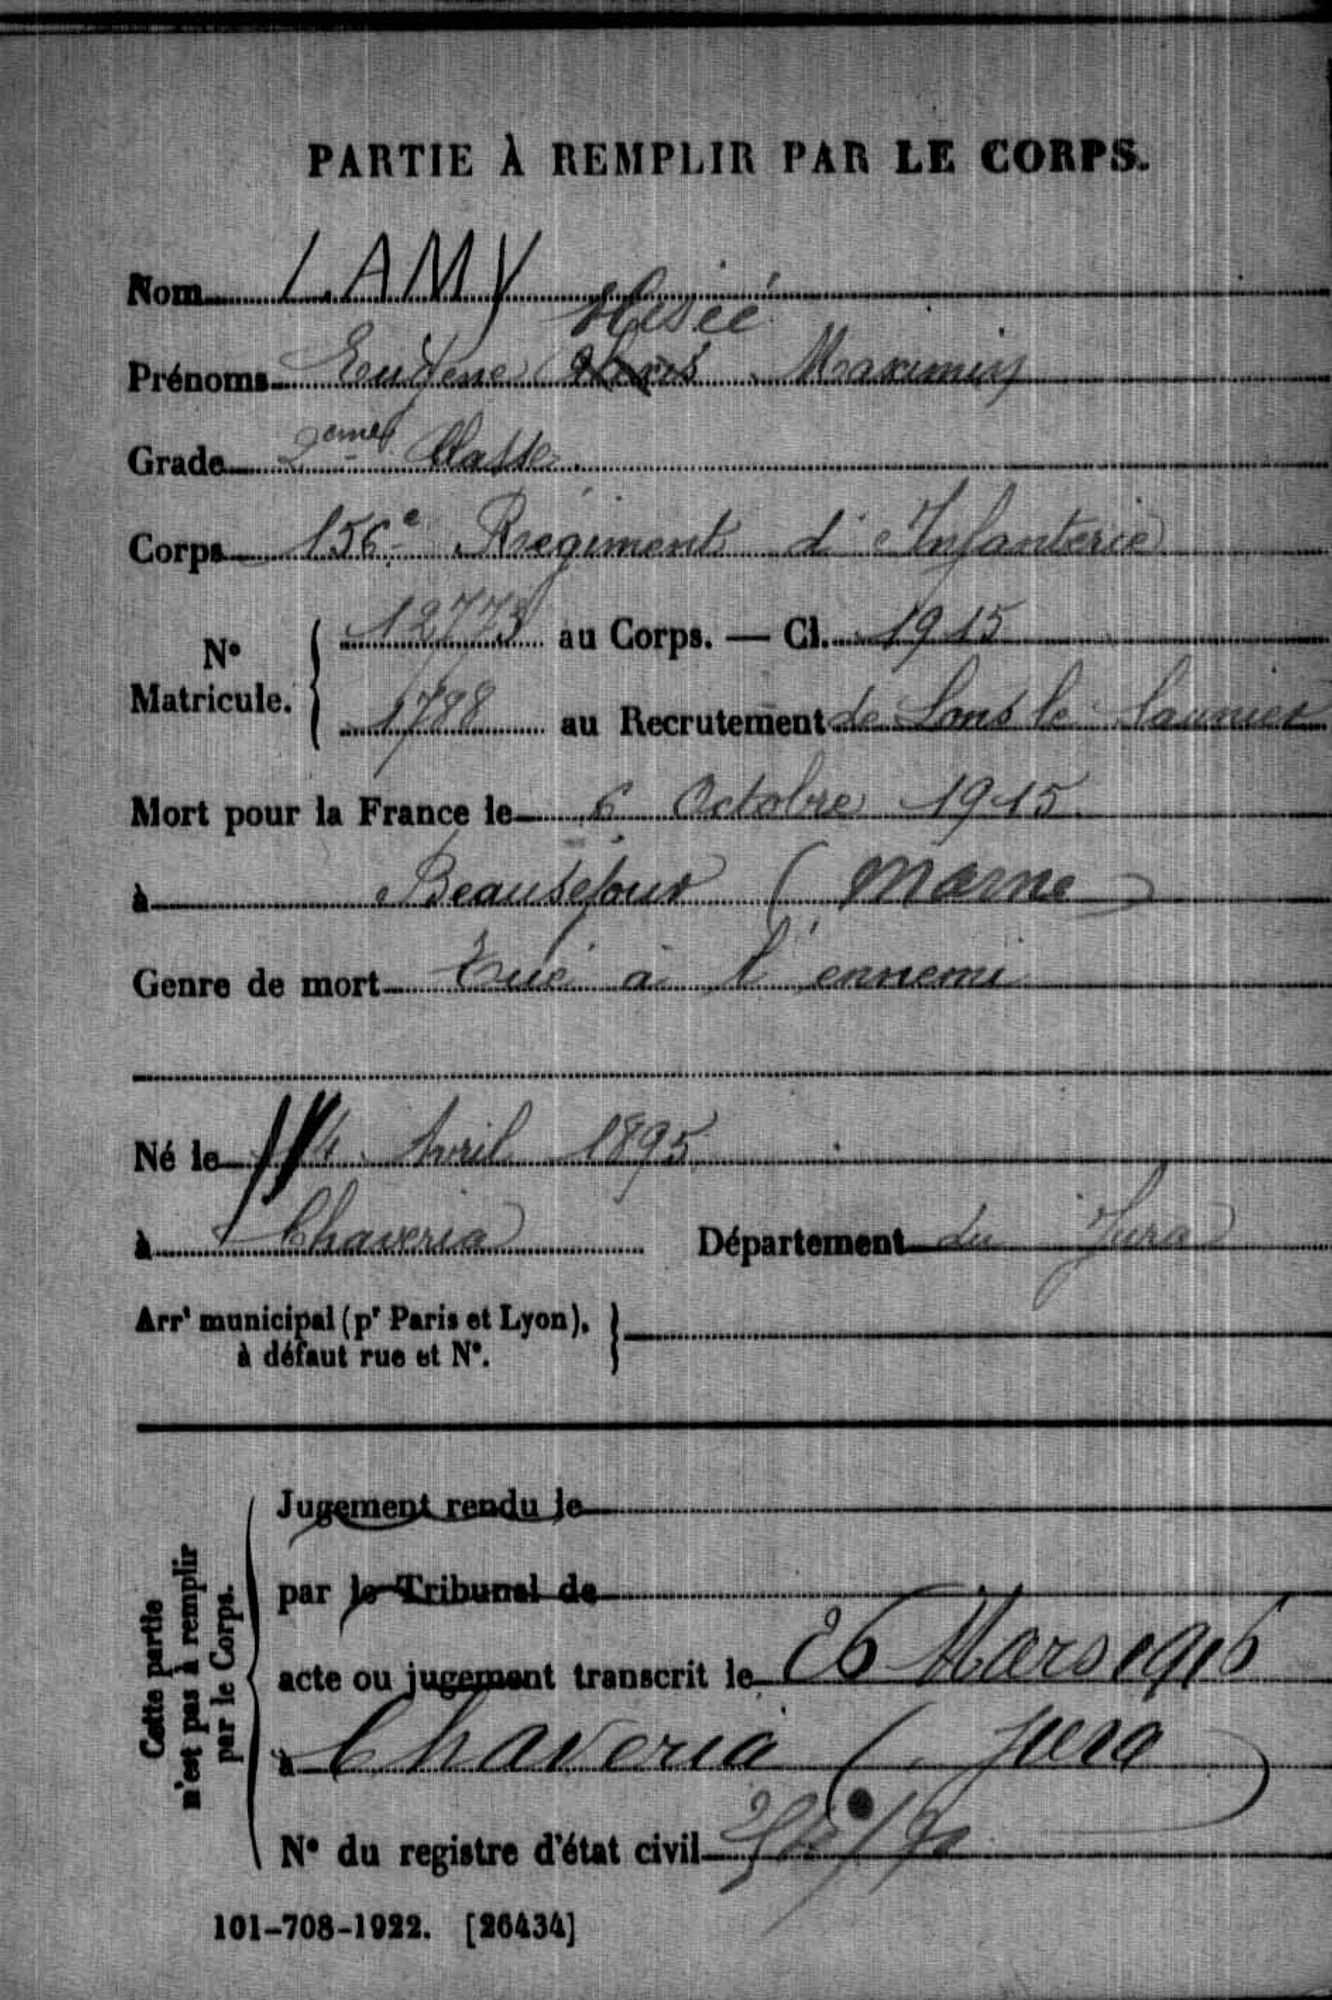 PARTIE À REMPLIR PAR LE CORPS.
Nom LAMY
Prénoms Eugène Elisée Maximin
Grade 2eme Classe
Corps 156e Régiment d'Infanterie
No Matricule. { 12773 au Corps. — Cl. 1915
1788 au Recrutement de Lons le Saunier
Mort pour la France le 6 Octobre 1915
à Beauséjour (Marne)
Genre de mort Tué à l'ennemi
Né le 14 Avril 1895
à Chaveria Département du Jura
Arrt municipal (pr Paris et Lyon), à défaut rue et No. }
Cette partie n'est pas à remplir par le Corps.
Jugement rendu le
par le Tribunal de
acte ou jugement transcrit le 26 Mars 1916
à Chaveria (Jura)
No du registre d'état civil
101-708-1922. [26434]